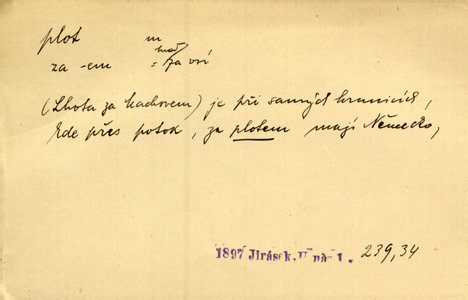 plot m
hned
za -em = za vsí
(Lhota za Machovem) je při samých hranicích,
kde přes potok, za plotem mají Německo,
1897 Jirásek, U nás 1. 239,34